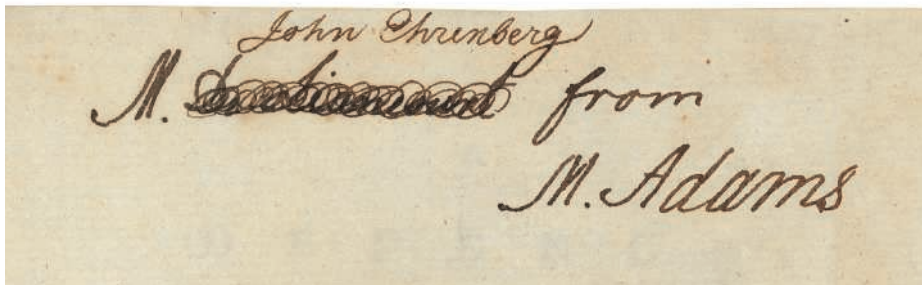 John Ehrenberg
M. from
M. Adams